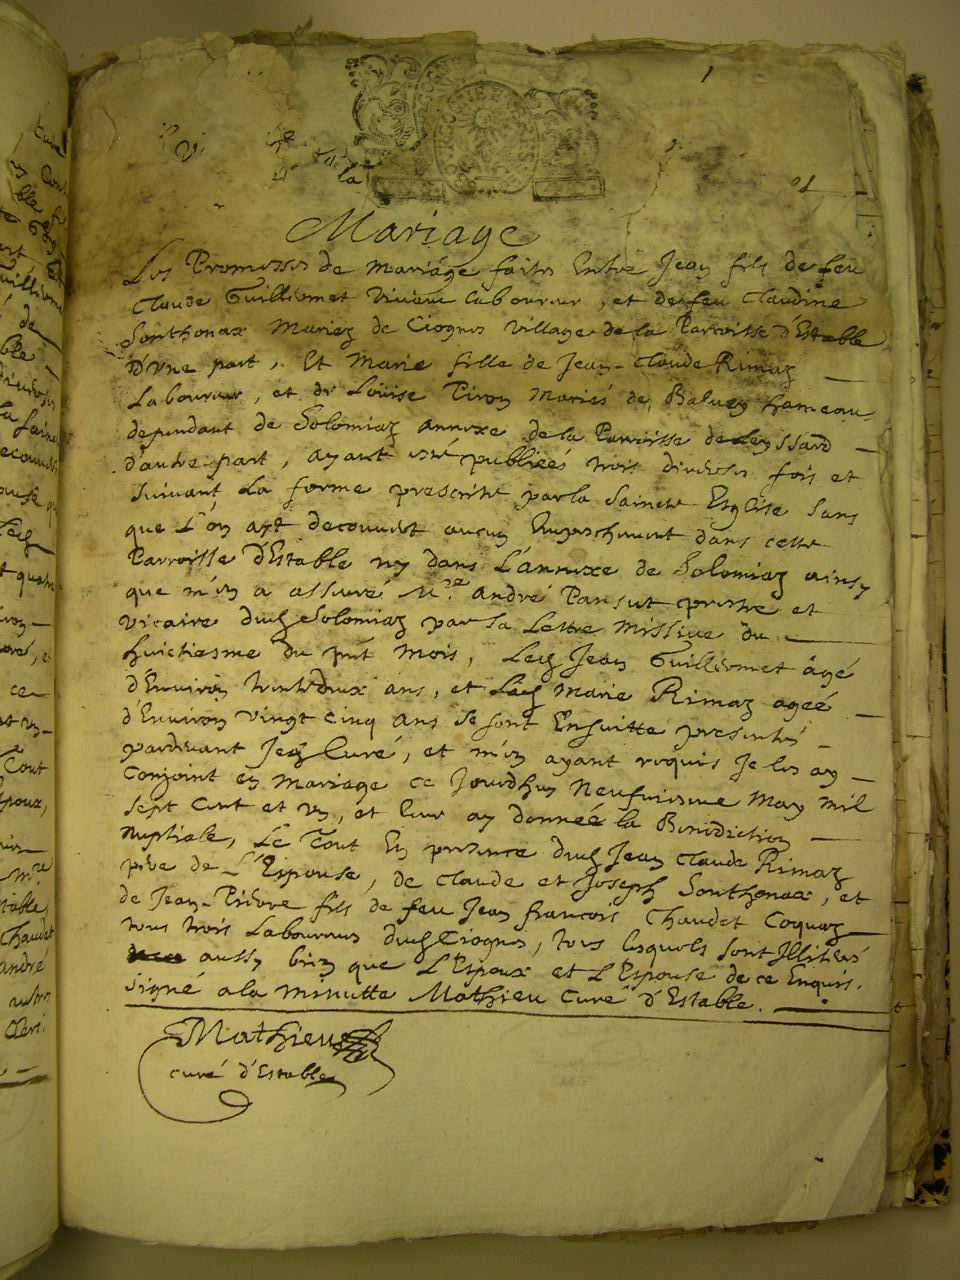 la
Mariage
Les Promesses de Mariage faites Entre Jean fils de feu
Claude Guilliermet vivant laboureur, et de feu Claudine
Sonthonax Mariez de Ciognes village de la Parroisse d'Estable
D'Une part, Et Marie fille de Jean-Claude Rimaz
Laboureur, et de Loüise Piron Mariés de Balvay hameau
dependant de Solomiaz annexe de la Parroisse de Leyssard
d'autre part, ayant esté publiées trois diverses fois et
suivant la forme prescritte par la Saincte Eglise sans
que L'on ayt decouvert aucun Empeschement dans cette
Parroisse d'Estable ny dans L'annexe de Solomiaz ainsy
que m'en a assuré Mre. André Pansut prestre et
vicaire dud Solomiaz par sa Lettre Missive du
huictiesme du pnt Mois, Led Jean Guilliermet âgé
d'Environ trente deux ans, et Lad Marie Rimaz agéé
d'Environ vingt cinq ans se sont Ensuitte presentés
pardevant Je Curé, et m'en ayant requis Je les ay
conjoint en mariage ce Jourdhuy Neufviesme May mil
sept cent et un, et leur ay donnée la Benediction
nuptiale, Le Tout En presence dud Jean Claude Rimaz
pere de L'Epouse, de Claude et Joseph Sonthonax, et
de Jean-Pierre fils de feu Jean francois Chaudet Coquaz
tous trois Laboureurs dud Ciognes, tous lesquels sont Illiterés
aussy bien que L'Epoux et L'Epouse de ce Enquis.
signé a la minutte Mathieu Curé d'Estable.
Mathieu
curé d'Estable